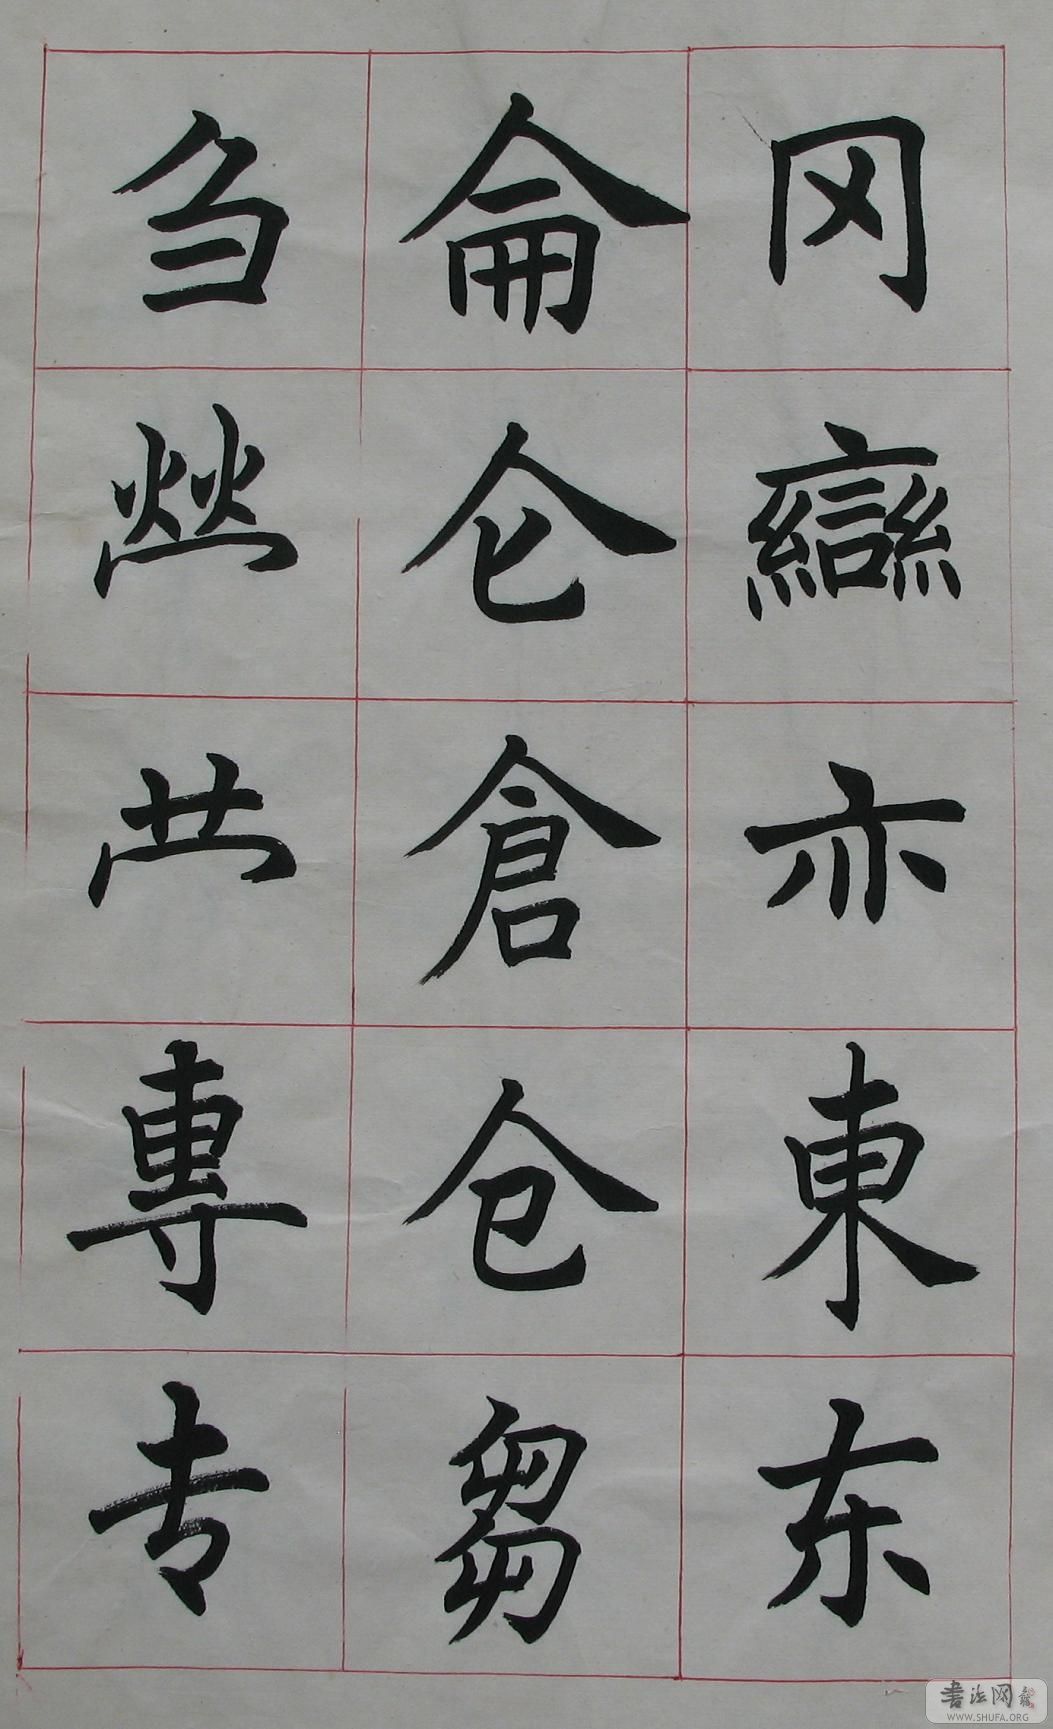 冈䜌亦東东
侖仑倉仓芻
刍𤇾𫇦專专
書法网
WWW.SHUFA.ORG